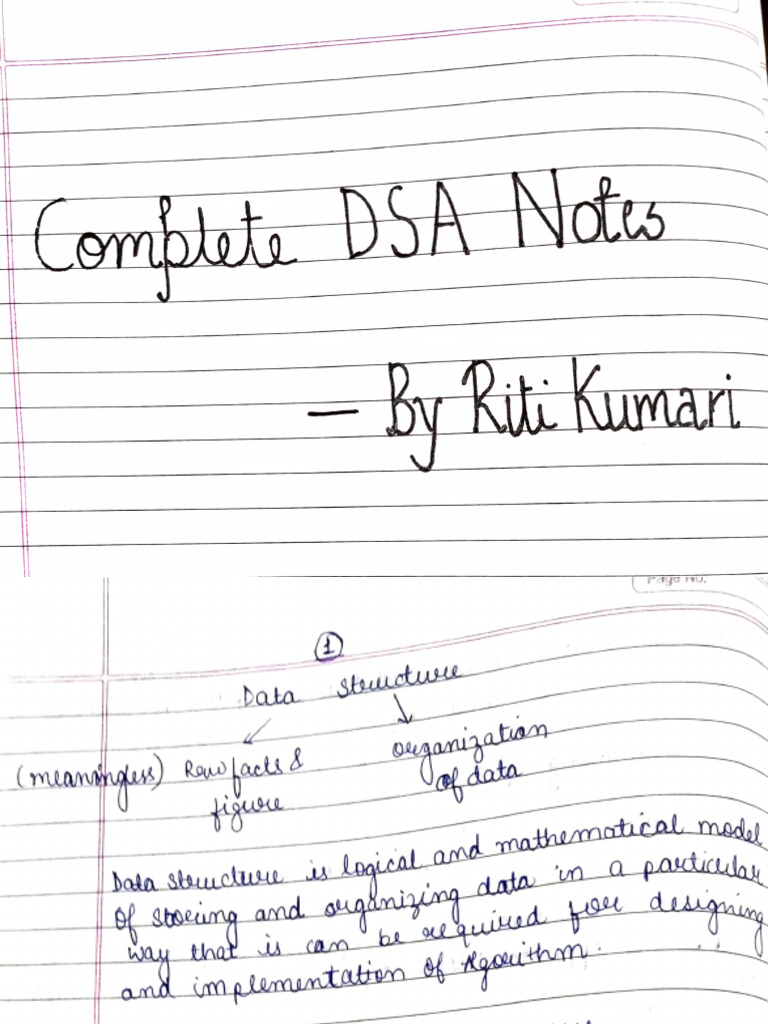 Complete DSA Notes
— By Riti Kumari
Page No.
1
Data structure
(meaningless) Raw facts & organization
figure of data
Data structure is logical and mathematical model
of storing and organizing data in a particular
way that is can be required for designing
and implementation of Agorithm.